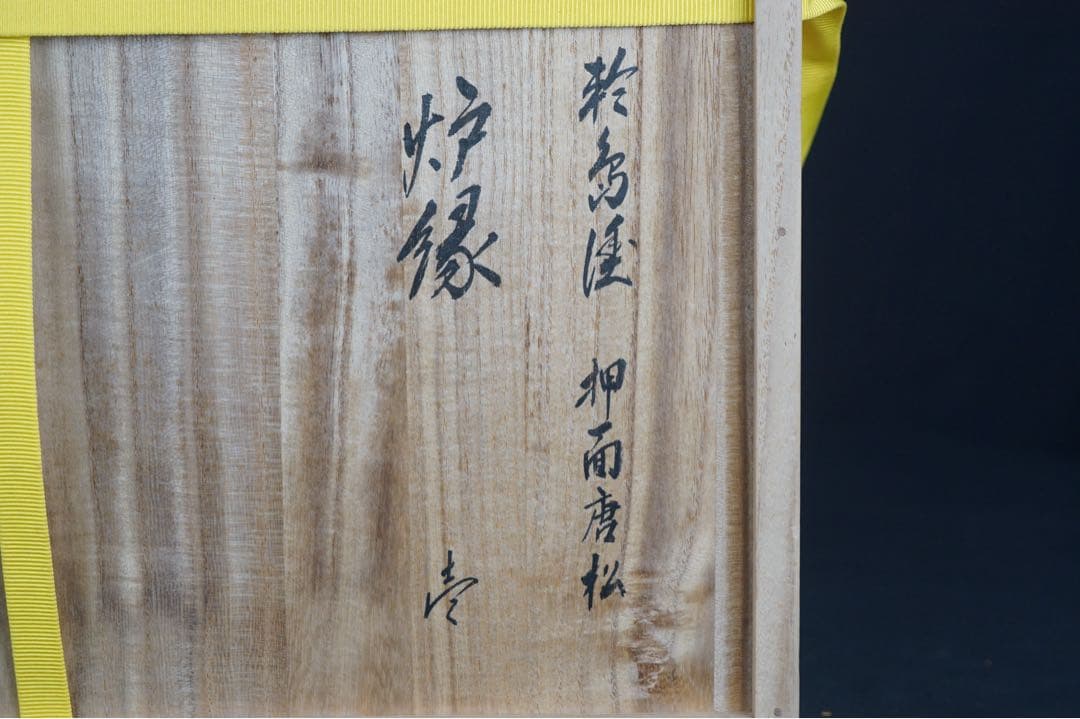 輪島塗 押面唐松
炉縁 壱